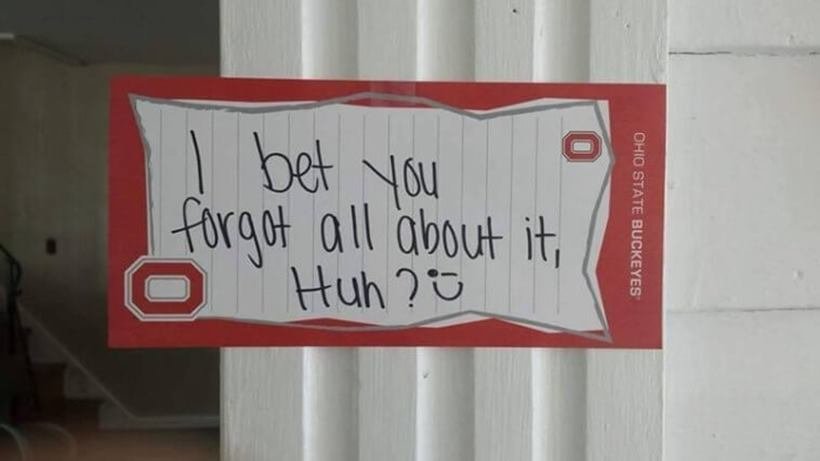 I bet you
forgot all about it,
Huh? :)
OHIO STATE BUCKEYES